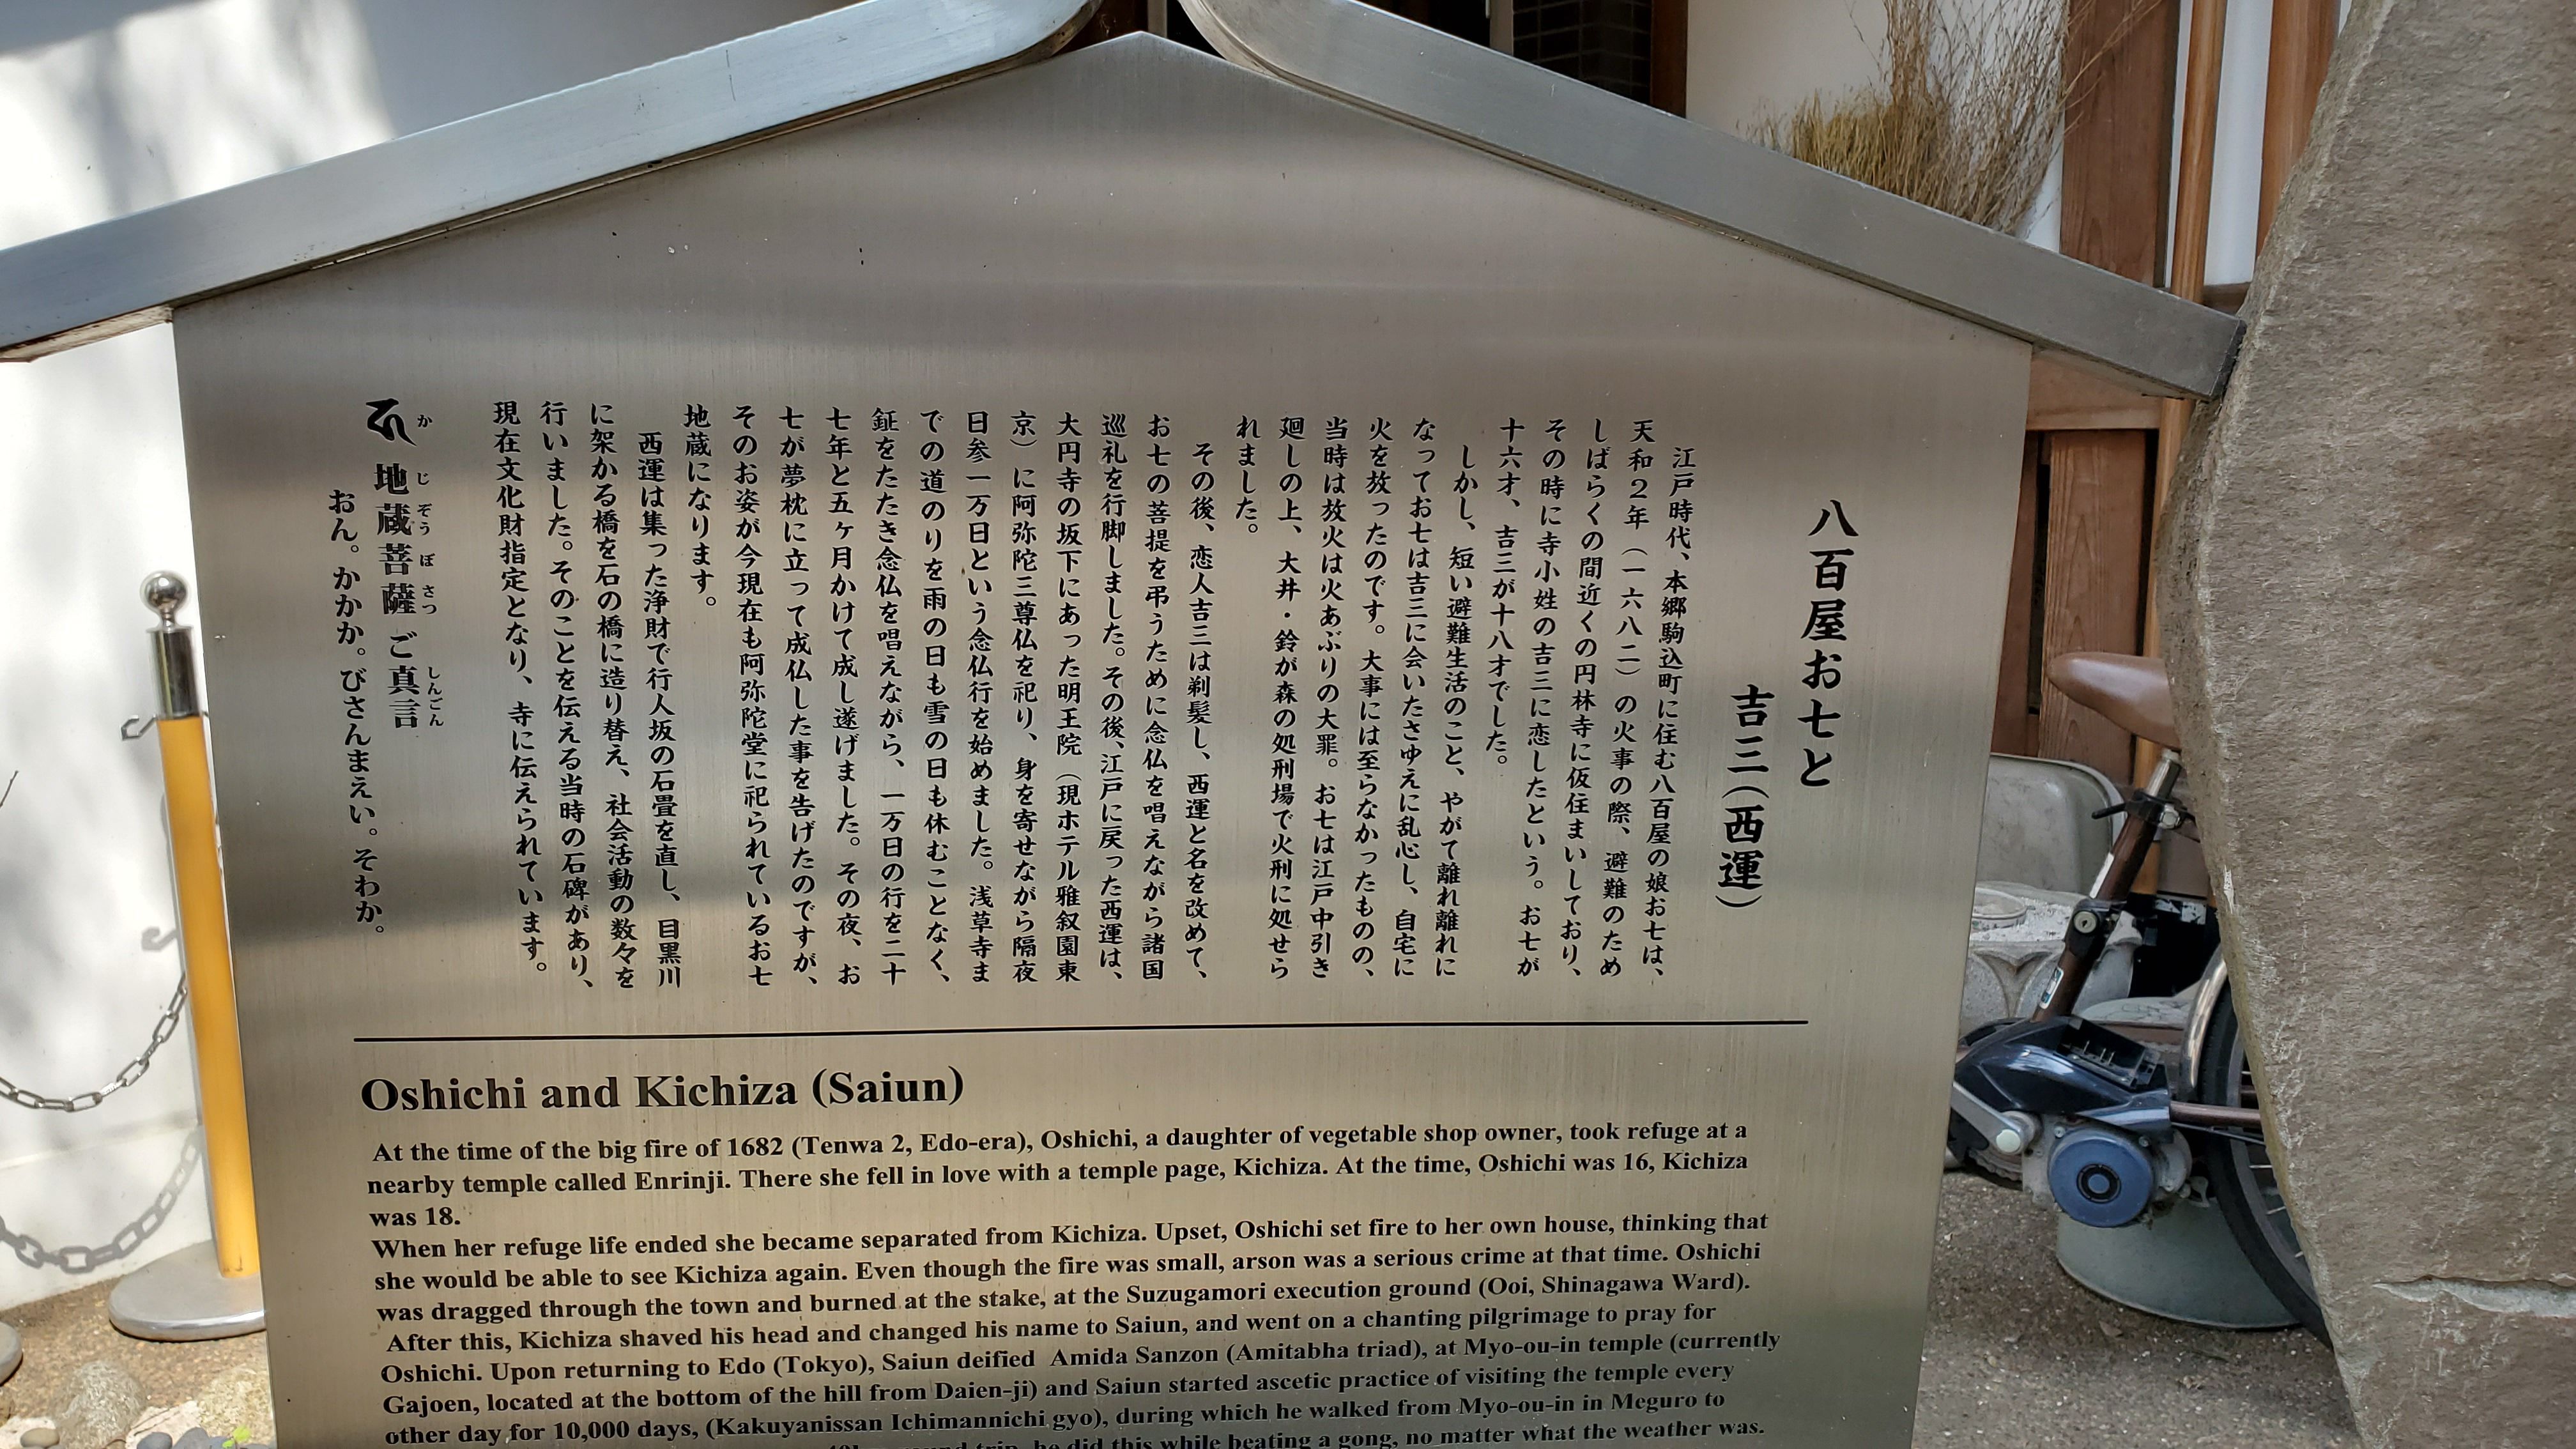 八百屋お七と
吉三(西運)
江戸時代、本郷駒込町に住む八百屋の娘お七は、
天和2年(一六八二)の火事の際、避難のため
しばらくの間近くの円林寺に仮住まいしており、
その時に寺小姓の吉三に恋したという。お七が
十六才、吉三が十八才でした。
しかし、短い避難生活のこと、やがて離れ離れに
なってお七は吉三に会いたさゆえに乱心し、自宅に
火を放ったのです。大事には至らなかったものの、
当時は放火は火あぶりの大罪。お七は江戸中引き
廻しの上、大井・鈴が森の処刑場で火刑に処せら
れました。
その後、恋人吉三は剃髪し、西運と名を改めて、
お七の菩提を弔うために念仏を唱えながら諸国
巡礼を行脚しました。その後、江戸に戻った西運は、
大円寺の坂下にあった明王院(現ホテル雅叙園東
京)に阿弥陀三尊仏を祀り、身を寄せながら隔夜
日参一万日という念仏行を始めました。浅草寺ま
での道のりを雨の日も雪の日も休むことなく、
鉦をたたき念仏を唱えながら、一万日の行を二十
七年と五ヶ月かけて成し遂げました。その夜、お
七が夢枕に立って成仏した事を告げたのですが、
そのお姿が今現在も阿弥陀堂に祀られているお七
地蔵になります。
西運は集った浄財で行人坂の石畳を直し、目黒川
に架かる橋を石の橋に造り替え、社会活動の数々を
行いました。そのことを伝える当時の石碑があり、
現在文化財指定となり、寺に伝えられています。
か じ ぞう ぼ さつ しんごん
地蔵菩薩ご真言
おん。かかか。びさんまえい。そわか。
Oshichi and Kichiza (Saiun)
At the time of the big fire of 1682 (Tenwa 2, Edo-era), Oshichi, a daughter of vegetable shop owner, took refuge at a
nearby temple called Enrinji. There she fell in love with a temple page, Kichiza. At the time, Oshichi was 16, Kichiza
was 18.
When her refuge life ended she became separated from Kichiza. Upset, Oshichi set fire to her own house, thinking that
she would be able to see Kichiza again. Even though the fire was small, arson was a serious crime at that time. Oshichi
was dragged through the town and burned at the stake, at the Suzugamori execution ground (Ooi, Shinagawa Ward).
After this, Kichiza shaved his head and changed his name to Saiun, and went on a chanting pilgrimage to pray for
Oshichi. Upon returning to Edo (Tokyo), Saiun deified Amida Sanzon (Amitabha triad), at Myo-ou-in temple (currently
Gajoen, located at the bottom of the hill from Daien-ji) and Saiun started ascetic practice of visiting the temple every
other day for 10,000 days, (Kakuyanissan Ichimannichi gyo), during which he walked from Myo-ou-in in Meguro to
trip, he did this while beating a gong, no matter what the weather was.